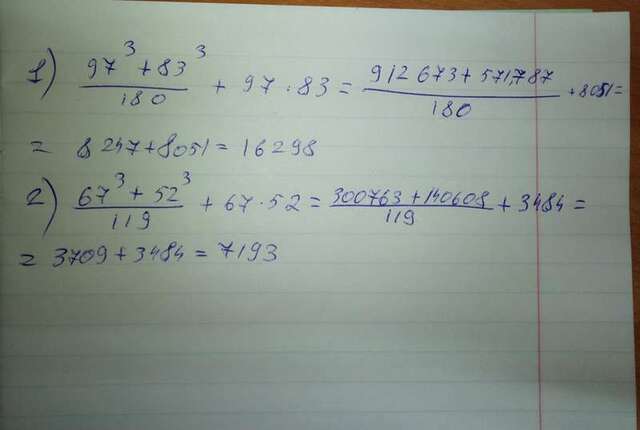 1) (97³ + 83³)/180 + 97 · 83 = (912 673 + 571,787)/180 + 8051 =
= 8 247 + 8051 = 16298
2) (67³ + 52³)/119 + 67 · 52 = (300763 + 140608)/119 + 3484 =
= 3709 + 3484 = 7193